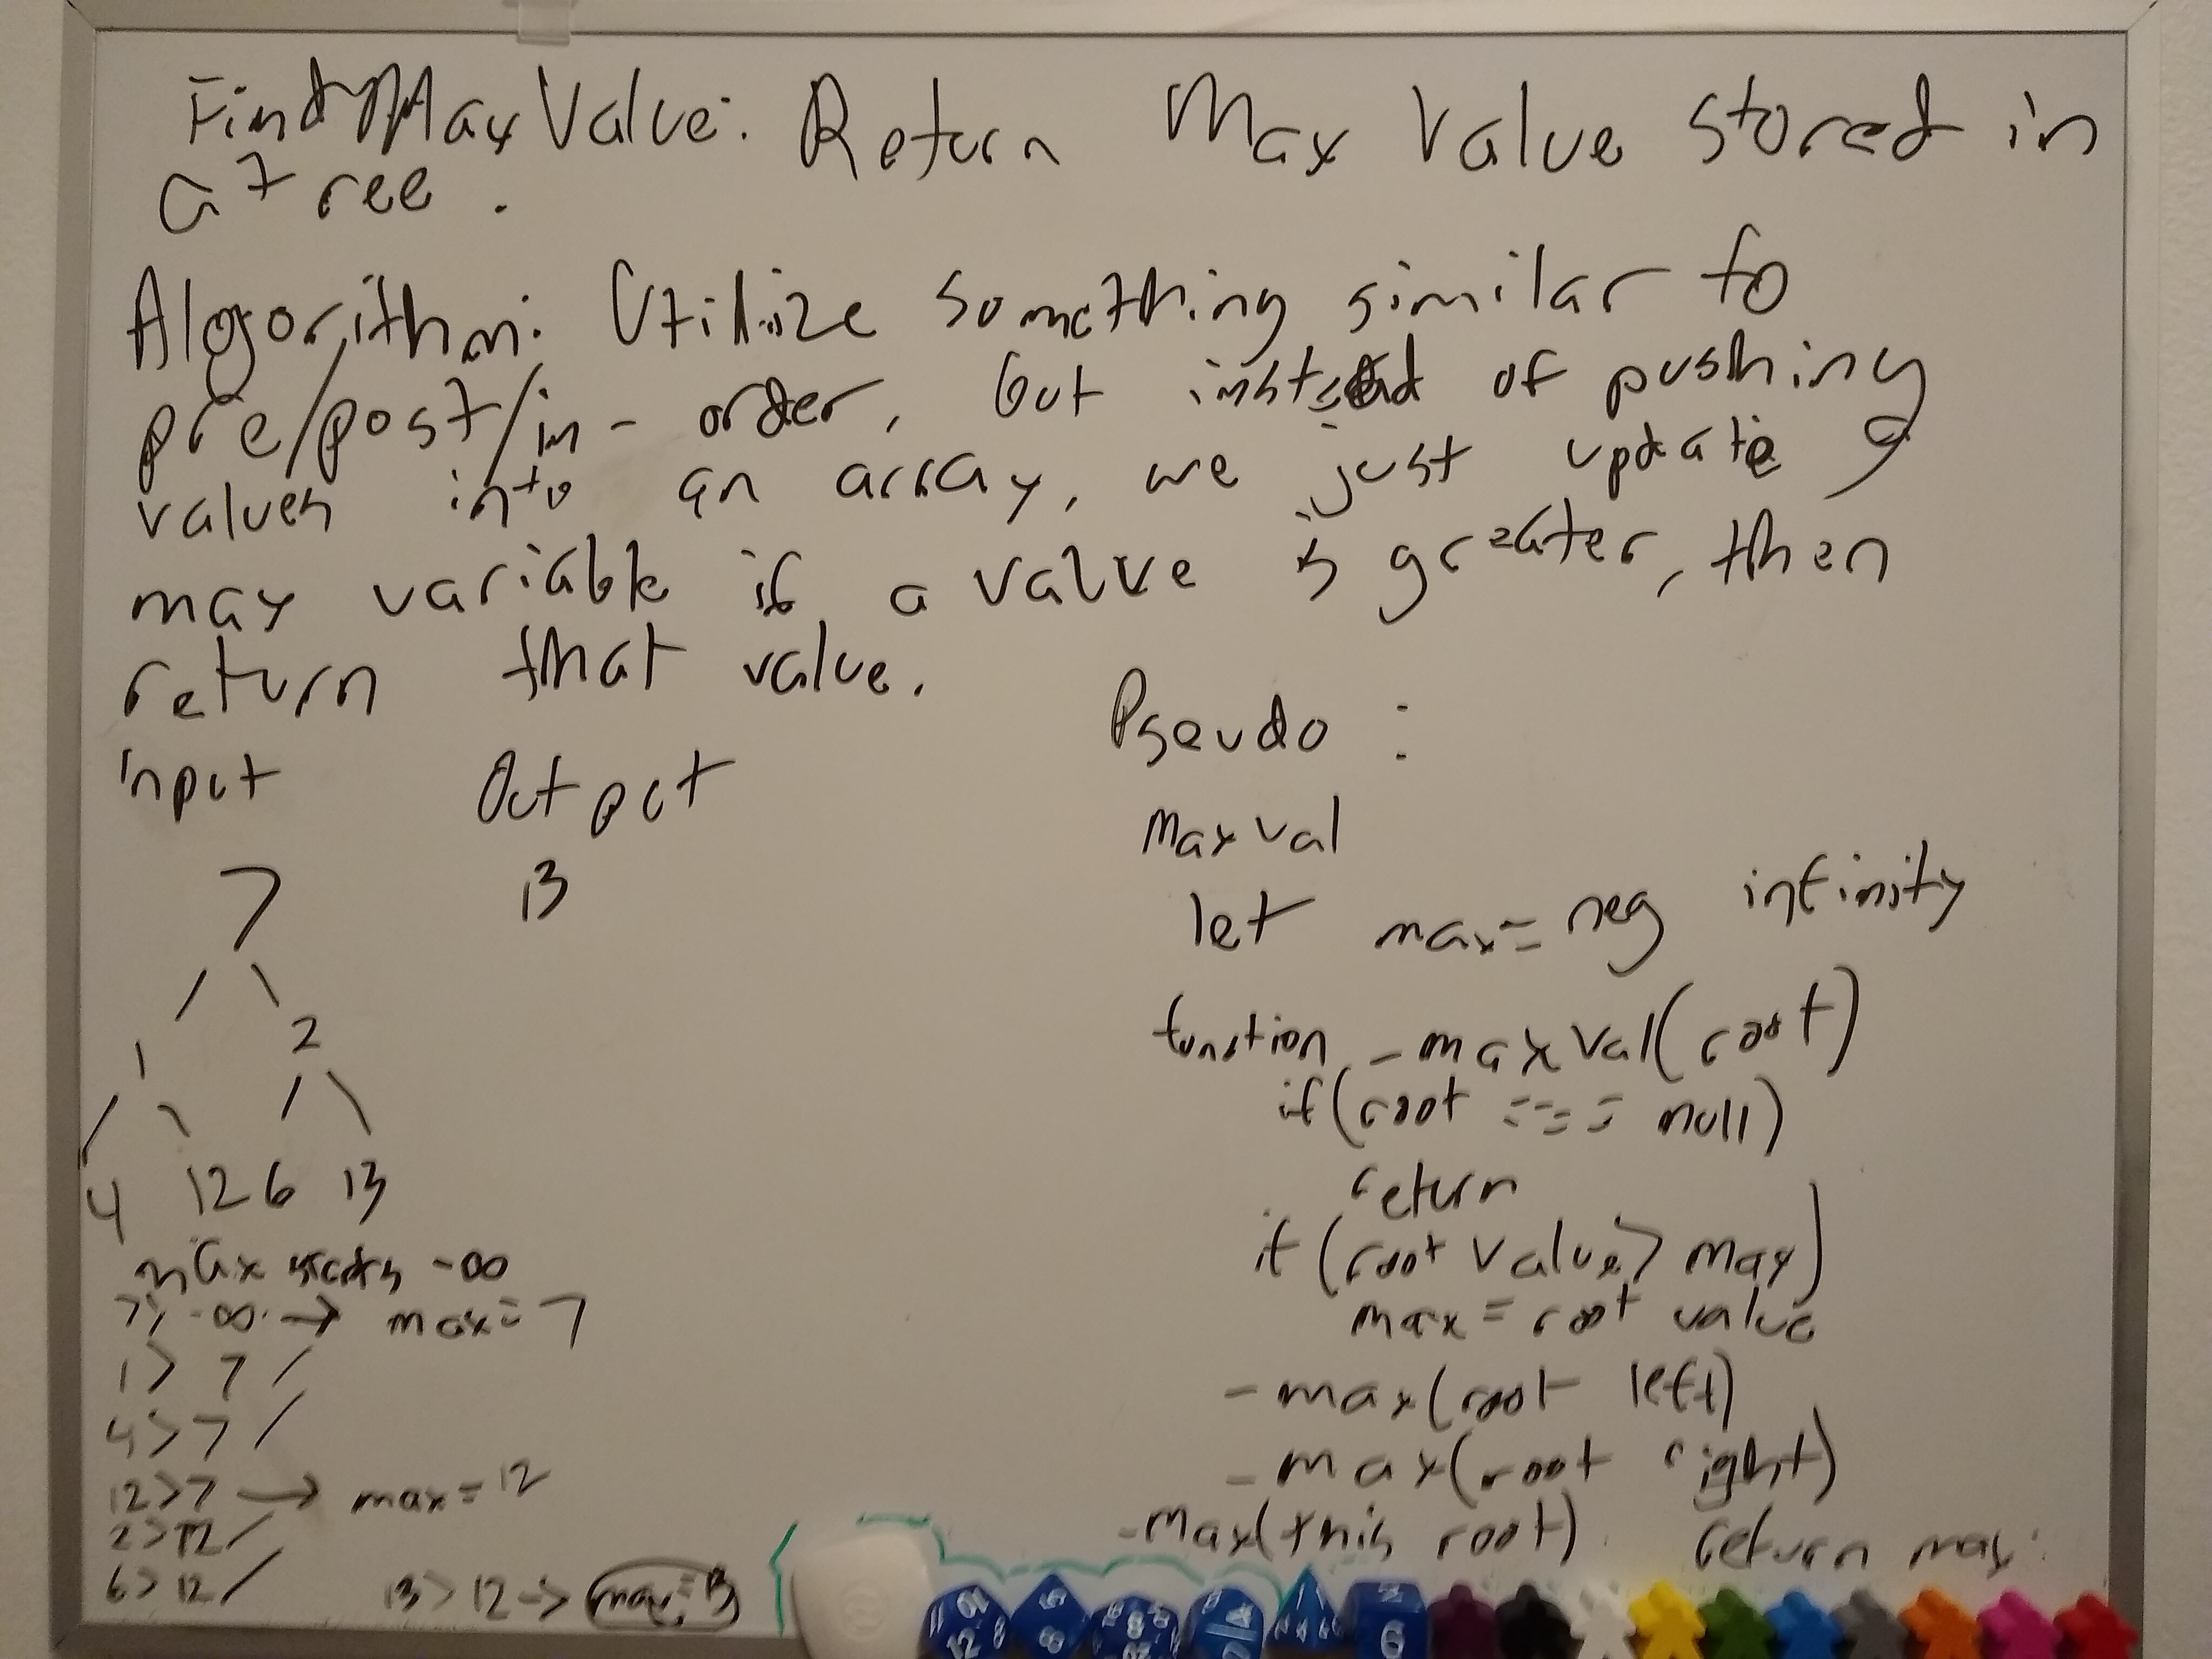 Find Max Value: Return Max Value stored in
a tree.
Algorithm: Utilize something similar to
pre/post/in-order, but instead of pushing
values into an array, we just update a
max variable if a value is greater, then
return that value.
input Output
13
7
/ \
1 2
/ \ / \
4 12 6 13
max starts -∞
7 > -∞ → max = 7
1 > 7 /
4 > 7 /
12 > 7 → max = 12
2 > 12 /
6 > 12 /
13 > 12 -> max = 13
Pseudo :
max val
let max = neg infinity
function -max Val(root)
if(root === null)
return
if (root value > max)
max = root value
-max(root left)
-max(root right)
-max(this root) return max
12
8
8
6